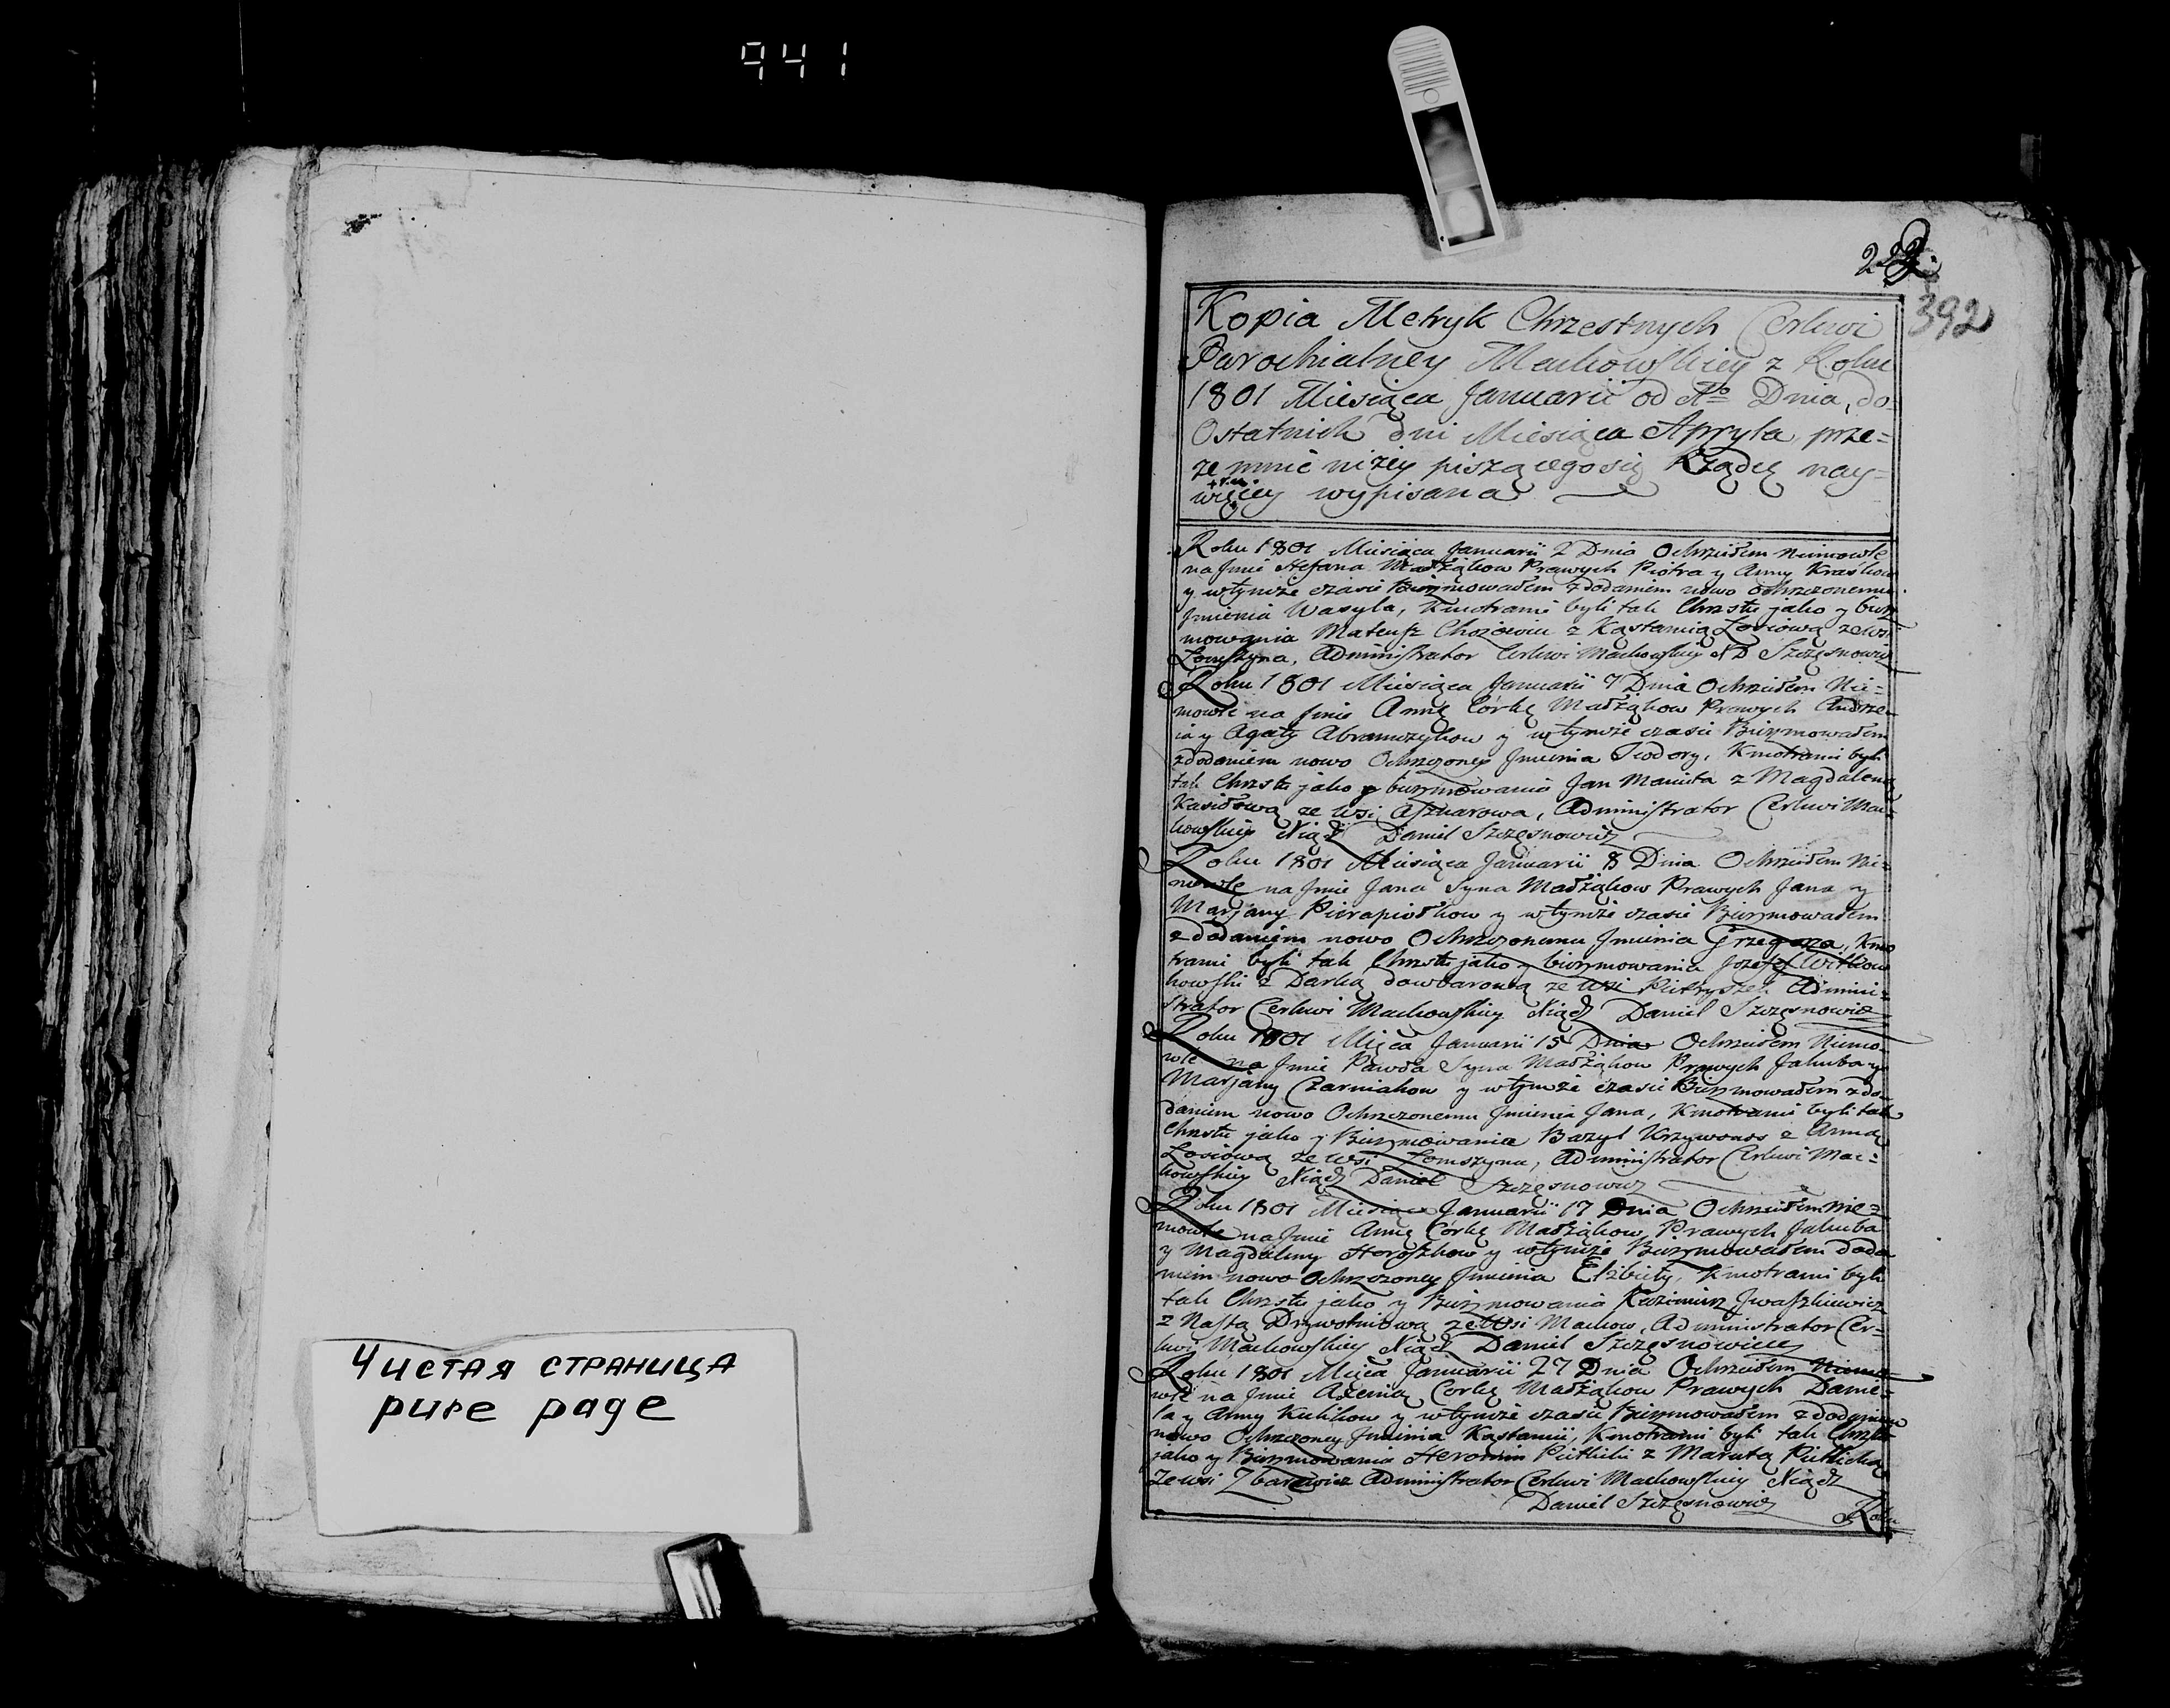 941
Чистая страница
pure page
392
Kopia Metryk Chrzestnych Cerkwi
Parochialney Machowskiey z Roku
1801 Miesiąca Januarii od Dnia, do
Ostatnich dni Miesiąca Apryla, prze=
ze mnie niżey piszącego się Rządcę nay=
więcey wypisana
Roku 1801 Miesiąca Januarii 2 Dnia Ochrzciłem Niemowle
na Jmie Stefana Małżąkow Prawych Piotra y Anny
y wtymże czasie Bierzmowałem z dodaniem nowo ochrzczonemu
Jmienia Wasyla, Kmotrami byli tak Chrztu jako y bierz
mowania Mateusz z Kastancią Łosiową ze wsi
Administrator Cerkwi Machowskiey X D Szczęsnowicz
Roku 1801 Miesiąca Januarii 7 Dnia Ochrzciłem Nie=
mowle na Jmie Annę Córkę Małżąkow Prawych Andrze=
ia y Agaty Abramczykow y wtymże czasie Bierzmowałem
z dodaniem nowo Ochrzczoney Jmienia Teodory, Kmotrami byli
tak Chrztu jako y bierzmowania Jan z Magdaleną
ze Wsi Administrator Cerkwi Mac=
howskiey Xiądz Daniel Szczęsnowicz
Roku 1801 Miesiąca Januarii 8 Dnia Ochrzciłem Nie=
mowle na Jmie Jana Syna Małżąkow Prawych Jana y
Marjany y wtymże czasie Bierzmowałem
z dodaniem nowo Ochrzczonemu Jmienia Grzegorza, Kmo
trami byli tak Chrztu jako y bierzmowania Jozef
z Darką ze Wsi Admini=
strator Cerkwi Machowskiey Xiądz Daniel Szczęsnowicz
Roku 1801 Mięca Januarii 15 Dnia Ochrzciłem Niemo=
wle na Jmie Pawła Syna Małżąkow Prawych Jakuba y
Marjany Czarniakow y wtymże czasie Bierzmowałem z do=
daniem nowo Ochrzczonemu Jmienia Jana, Kmotrami byli tak
Chrztu jako y Bierzmowania Bazyl Krzywonos z Anną
Łosiową ze wsi Łomszyna, Administrator Cerkwi Mac=
howskiey Xiądz Daniel Szczęsnowicz
Roku 1801 Miesiąca Januarii 17 Dnia Ochrzciłem Nie=
mowle na Jmie Annę Córkę Małżąkow Prawych Jakuba
y Magdaleny y wtymże Bierzmowałem doda
niem nowo Ochrzczoney Jmienia Elżbiety, Kmotrami byli
tak Chrztu jako y Bierzmowania Kazimierz Jwaszkiewicz
z Nastą ze Wsi Machow, Administrator Cer=
kwi Machowskiey Xiądz Daniel Szczęsnowicz
Roku 1801 Mięca Januarii 27 Dnia Ochrzciłem Niemo=
wle na Jmie Axenią Corkę Małżąkow Prawych Danie=
la y Anny Kulikow y wtymże czasie Bierzmowałem z dodaniem
nowo Ochrzczoney Jmienia Kastancii, Kmotrami byli tak Chrztu
jako y Bierzmowania Heronim z Marutą
ze wsi Administrator Cerkwi Machowskiey Xiądz
Daniel Szczęsnowicz
Roku